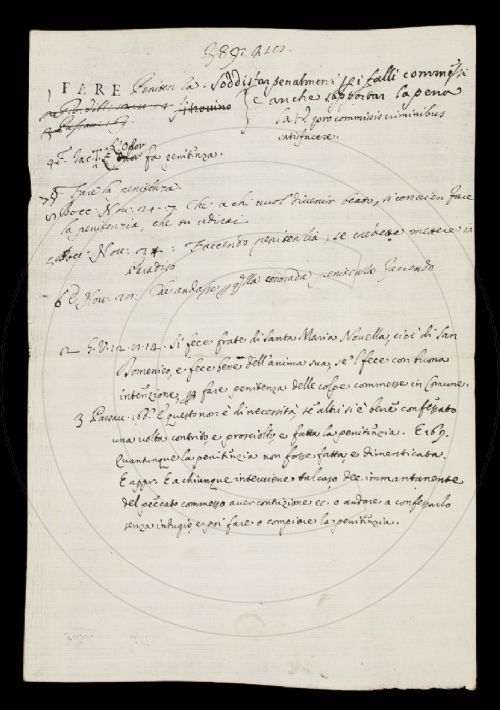 389.
FARE Penitenza. Soddisfar penalmente i falli commessi
e anche sopportar la pena
Lat. pro commissis criminibus
satisfacere.
fa penitenza.
Fare la penitenza.
Bocc. Nov. 24. 7. Che a chi vuol divenir beato, si convien fare
la penitenzia, che tu udirai
Bocc. Nov. 24. : Faccendo penitenzia, se credette mettere in
paradiso
Nov. Che andasse contrada, faccendo
2 G. V. 12. 21. 14. Si fece frate di Santa Maria Novella, cioè di San
Domenico, e fece bene dell'anima sua, se 'l fece con buona
intenzione, fare penitenza delle colpe commesse in Comune.
3 Passav. 166. E questo non è di necessità, se altri si è bene confessato
una volta contrito, e prosciolto, e fatta la penitenzia. E 169.
Quantunque la penitenzia non fosse fatta, e dimenticata.
E appr. E a chiunque interviene tal caso dee immantanente
del peccato commesso aver contrizione ec. o andare a confessarlo
senza indugio, e poi fare o compiere la penitenzia.